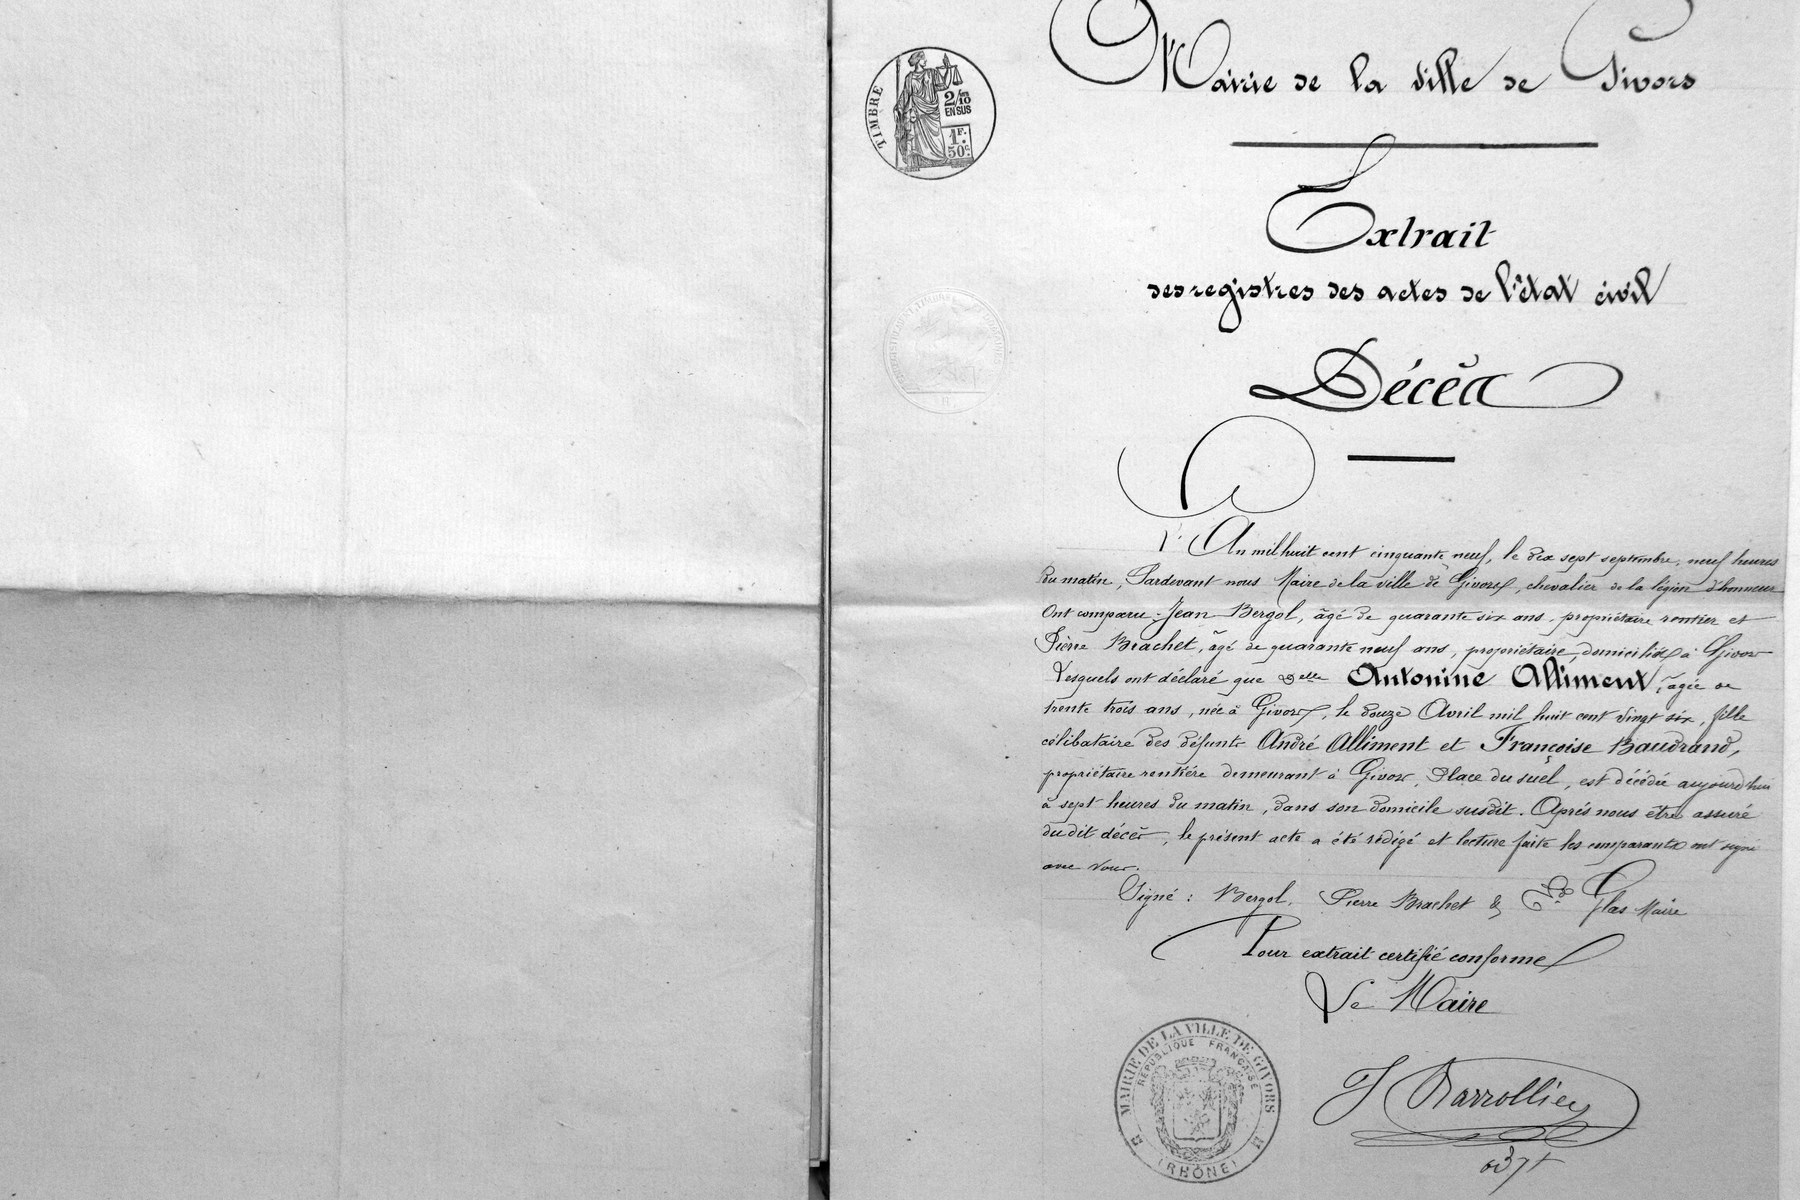 Mairie de la ville de Givors
TIMBRE
2/10 EN SUS
1F.
50c.
Extrait
des registres des actes de l'état civil
Décès
L'An mil huit cent cinquante neuf, le dix sept septembre, neuf heures
du matin, Pardevant nous Maire de la ville de Givors, chevalier de la légion d'honneur
Ont comparu : Jean Bergol, âgé de quarante six ans, propriétaire rentier et
Pierre Brachet, âgé de quarante neuf ans, propriétaire, domiciliés à Givors
Lesquels ont déclaré que Delle Antonine Alliment, âgée de
trente trois ans, née à Givors, le douze Avril mil huit cent vingt six, fille
célibataire des défunts André Alliment et Françoise Baudrand,
propriétaire rentière demeurant à Givors, Place du suel, est décédée aujourd'hui
à sept heures du matin, dans son domicile susdit. Après nous être assuré
du dit décès, le présent acte a été rédigé et lecture faite les comparants ont signé
avec nous.
Signé : Bergol, Pierre Brachet & Glas Maire
Pour extrait certifié conforme
Le Maire
MAIRIE DE LA VILLE DE GIVORS
RÉPUBLIQUE FRANÇAISE
(RHÔNE)